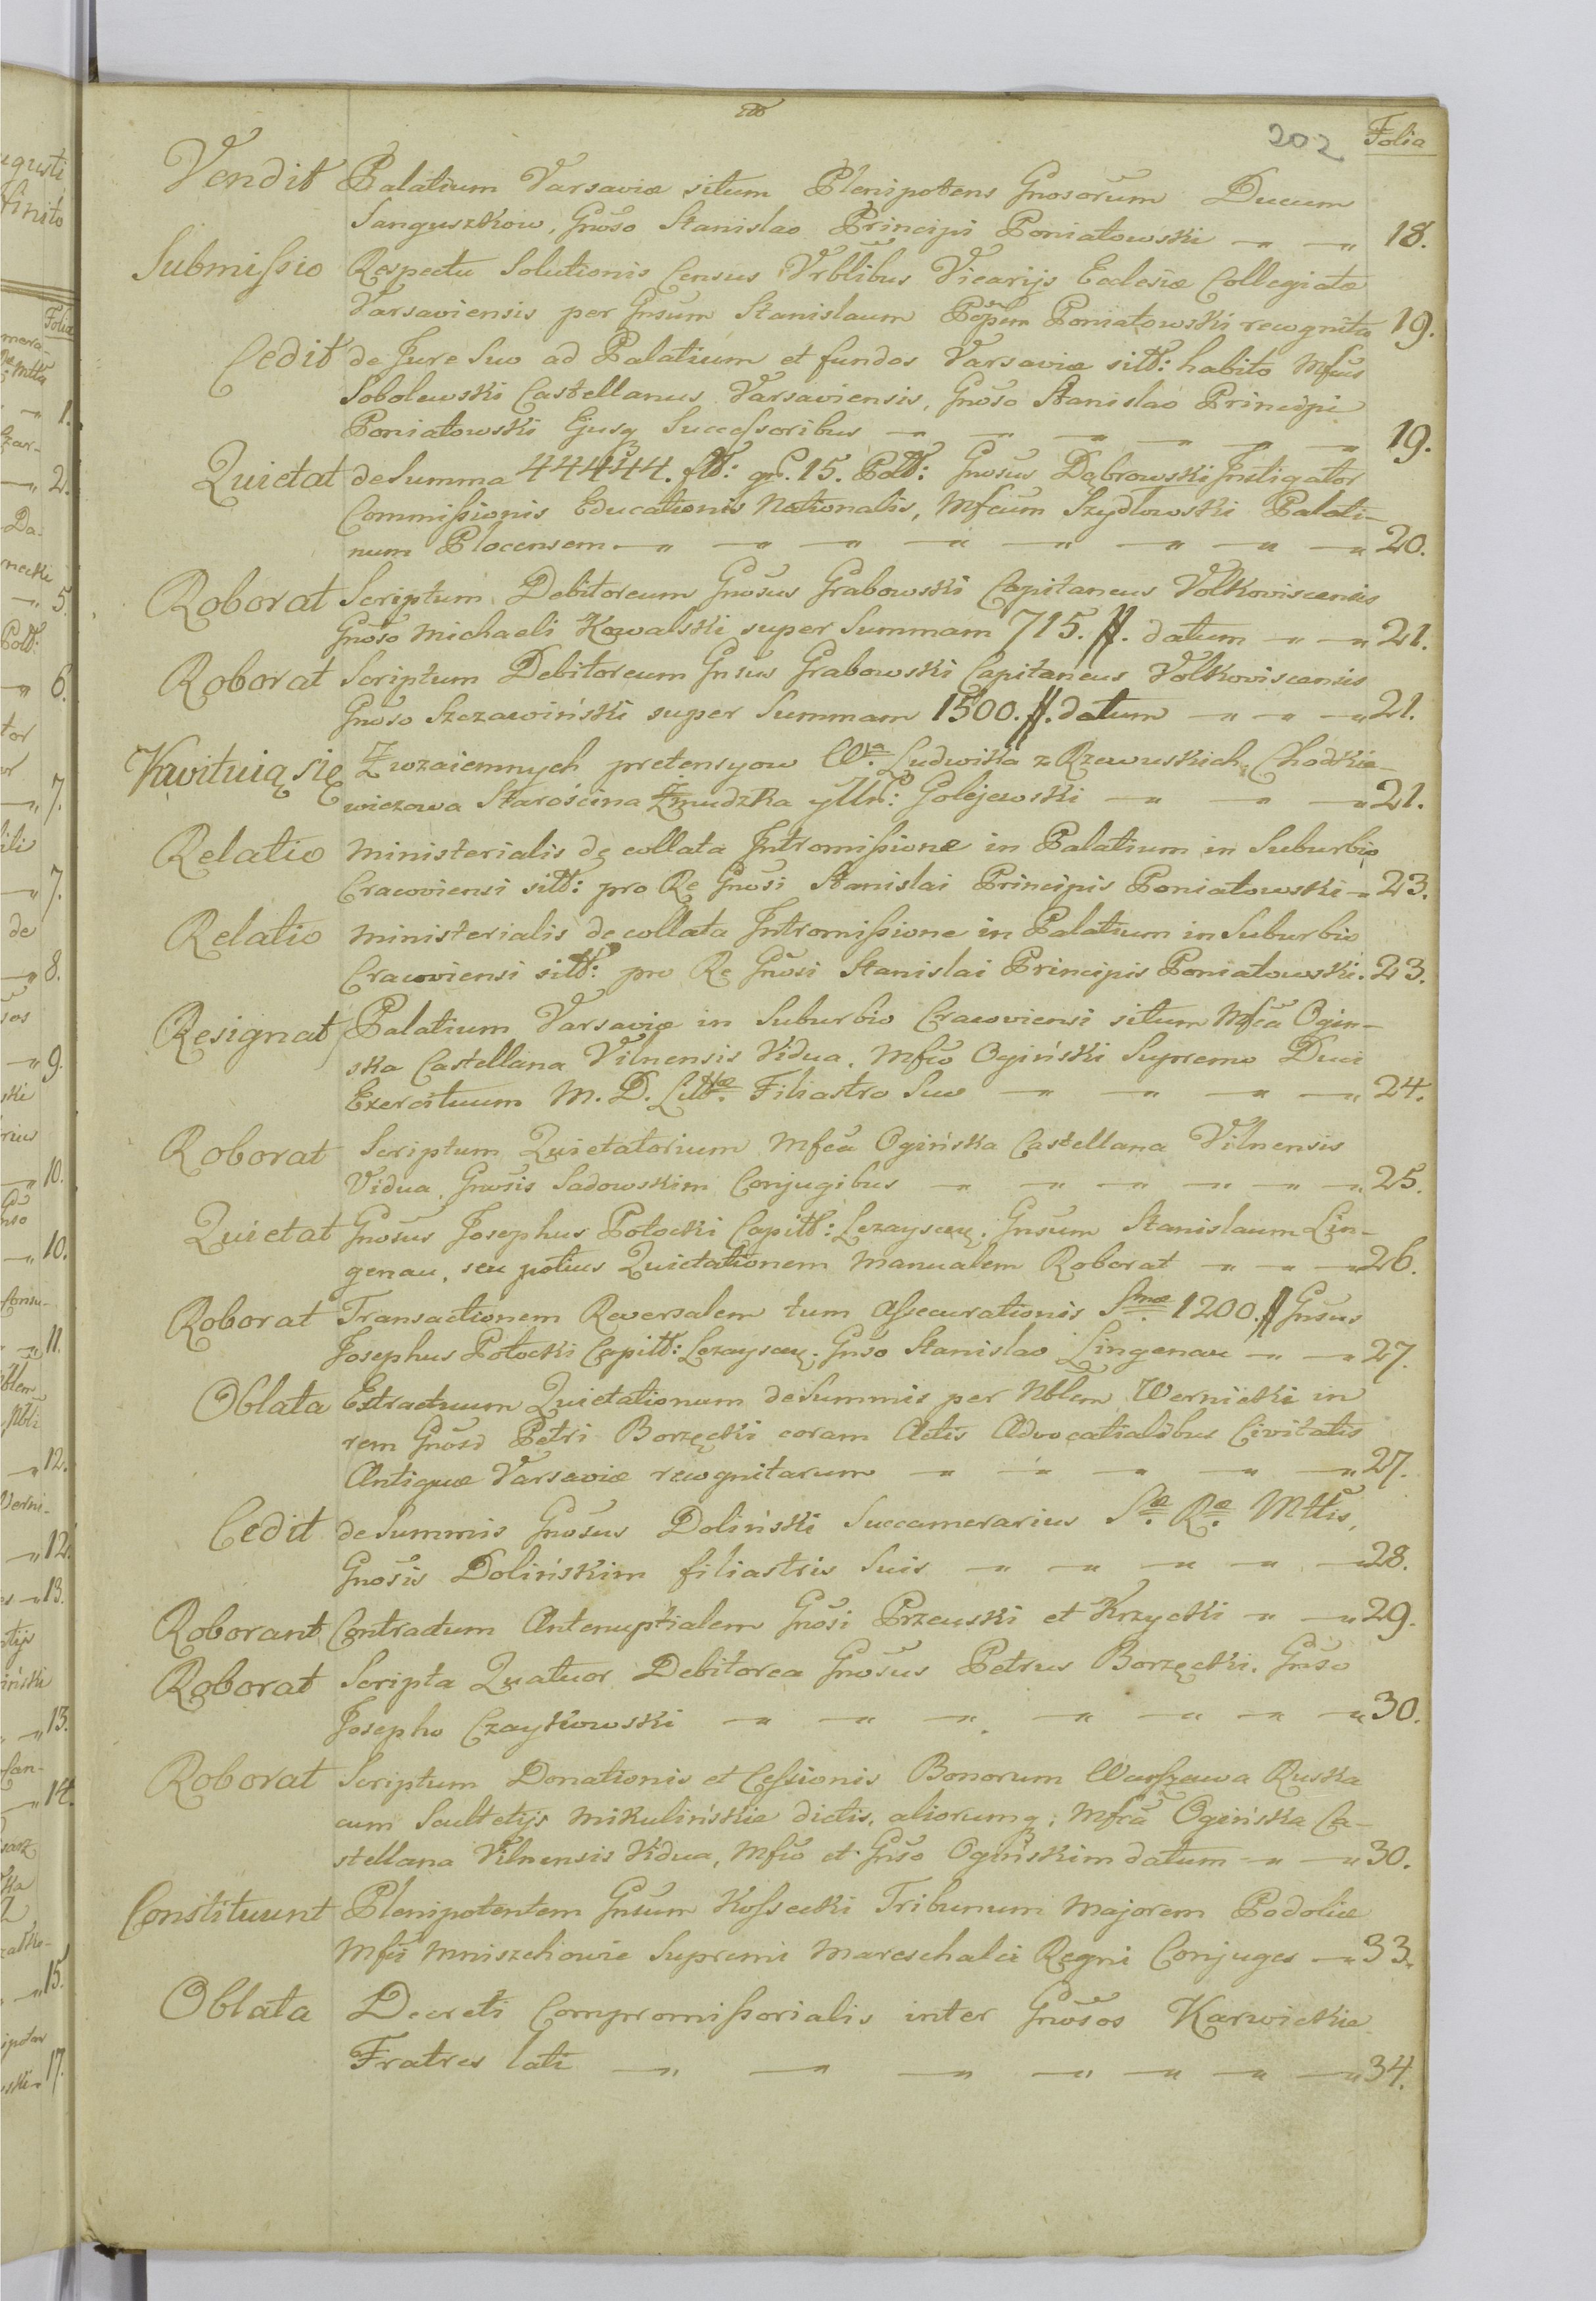 202
Folia
Vendit Palatium Varsaviæ situm Plenipotens Gnosorum Ducum
Sanguszkow, Gnoso Stanislao Principi Poniatowski 18.
Submissio Respectu Solutionis Census Vrblibus Vicarijs Ecclesiæ Collegiatæ
Varsaviensis per Gnsum Stanislaum Poniatowski recognita 19.
Cedit de Jure Suo ad Palatium et fundos Varsaviæ sitt: habito Mfcus
Sobolewski Castellanus Varsaviensis, Gnoso Stanislao Principi
Poniatowski Ejusq Successoribus 19.
Quietat de Summa 44444. flt: gr. 15. Polt: Gnosus Dąbrowski Instigator
Commissionis Educationis Nationalis, Mfcum Szydłowski Palati-
num Plocensem 20.
Roborat Scriptum Debitoreum Gnosus Grabowski Capitaneus Volkoviscensis
Gnoso Michaeli Kowalski super Summam 715. #. datum 21.
Roborat Scriptum Debitoreum Gnsus Grabowski Capitaneus Volkoviscensis
Gnoso Szczawiński super Summam 1500. #. datum 21.
Kwituią się Z wzaiemnych pretensyow Wa. Ludwika z Rzewuskich Chodkie-
wiczowa Starościna Żmudzka y Golejewski 21.
Relatio Ministerialis de collata Intromissione in Palatium in Suburbio
Cracoviensi sitt: pro Re Gnosi Stanislai Principis Poniatowski 23.
Relatio Ministerialis de collata Intromissione in Palatium in Suburbio
Cracoviensi sitt: pro Re Gnosi Stanislai Principis Poniatowski. 23.
Resignat Palatium Varsaviæ in Suburbio Cracoviensi situm Mfca Ogin-
ska Castellana Vilnensis Vidua, Mfco Ogiński Supremo Duci
Exercituum M. D. Littæ. Filiastro Suo 24.
Roborat Scriptum Quietatorium Mfca Ogińska Castellana Vilnensis
Vidua, Gnosis Sadowskim Conjugibus 25.
Quietat Gnosus Josephus Potocki Capitt: Lezaysceñ. Gnsum Stanislaum Lin-
genau, seu potius Quietationem Manualem Roborat 26.
Roborat Transactionem Reversalem tum Assecurationis Smæ. 1200. # Gnsus
Josephus Potocki Capitt: Lezaysceñ. Gnso Stanislao Lingenau 27.
Oblata Extractuum Quietationum de Summis per Nblem Wernicki in
rem Gnosi Petri Borzęcki coram Actis Advocatialibus Civitatis
Antiquæ Varsaviæ recognitarum 27.
Cedit de Summis Gnosus Doliński Succamerarius Sæ. Ræ. Mttis,
Gnosis Dolińskim filiastris Suis 28.
Roborant Contractum Antenuptialem Gnosi Przeuski et Krzycki 29.
Roborat Scripta Quatuor Debitorea Gnosus Petrus Borzęcki, Gnso
Josepho Czaykowski 30.
Roborat Scriptum Donationis et Cessionis Bonorum Warszawa Ruska
cum Scultetijs Mikulińskie dictis, aliorumq; Mfca Ogińska Ca-
stellana Vilnensis Vidua, Mfco et Gnso Ogińskim datum 30.
Constituunt Plenipotentem Gnsum Kossecki Tribunum Majorem Podoliæ
Mfci Mniszchowie Supremi Mareschalci Regni Conjuges 33.
Oblata Decreti Compromissorialis inter Gnosos Karwickie
Fratres lati 34.